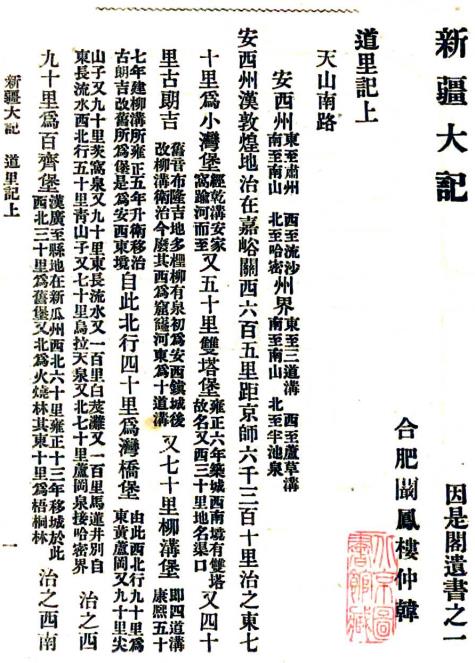 新疆大記　因是閣遺書之一
合肥闞鳳樓仲韓
道里記上
天山南路
安西州東至肅州　西至流沙南至南山　北至哈密州界東至三道溝　西至蘆草溝南至南山　北至芉池泉
安西州漢敦煌地治在嘉峪關西六百五里距京師六千三百十里治之東七
十里爲小灣堡經乾溝安家窩踰河而至又五十里雙塔堡雍正六年築城西南境有雙塔故名又西三十里地名渠口又四十
里古朗吉舊音布隆吉地多檉柳有泉初爲安西鎮城後改柳溝衛治今廢其西爲窟窿河東爲十道溝又七十里柳溝堡即四道溝康熙五十
七年建柳溝所雍正五年升衛移治古朗吉改舊所爲堡是爲安西東境自此北行四十里爲灣橋堡由此西北行九十里爲東黃蘆岡又九十里尖
山子又九十里茨窩泉又九十里東長流水又一百里白茂灘又一百里馬蓮井別自東長流水西北行五十里青山子又七十里烏拉天泉又北七十里蘆岡泉接哈密界治之西
九十里爲百齊堡漢廣至縣地在新瓜州西北六十里雍正十三年移城於此西北三十里爲舊堡又北爲火燒林其東十里爲梧桐林治之西南
新疆大記　道里記上　一
北京圖書館藏